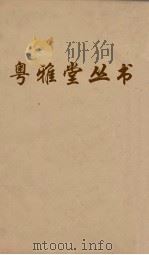 粤雅堂丛书
www.mtoou.info